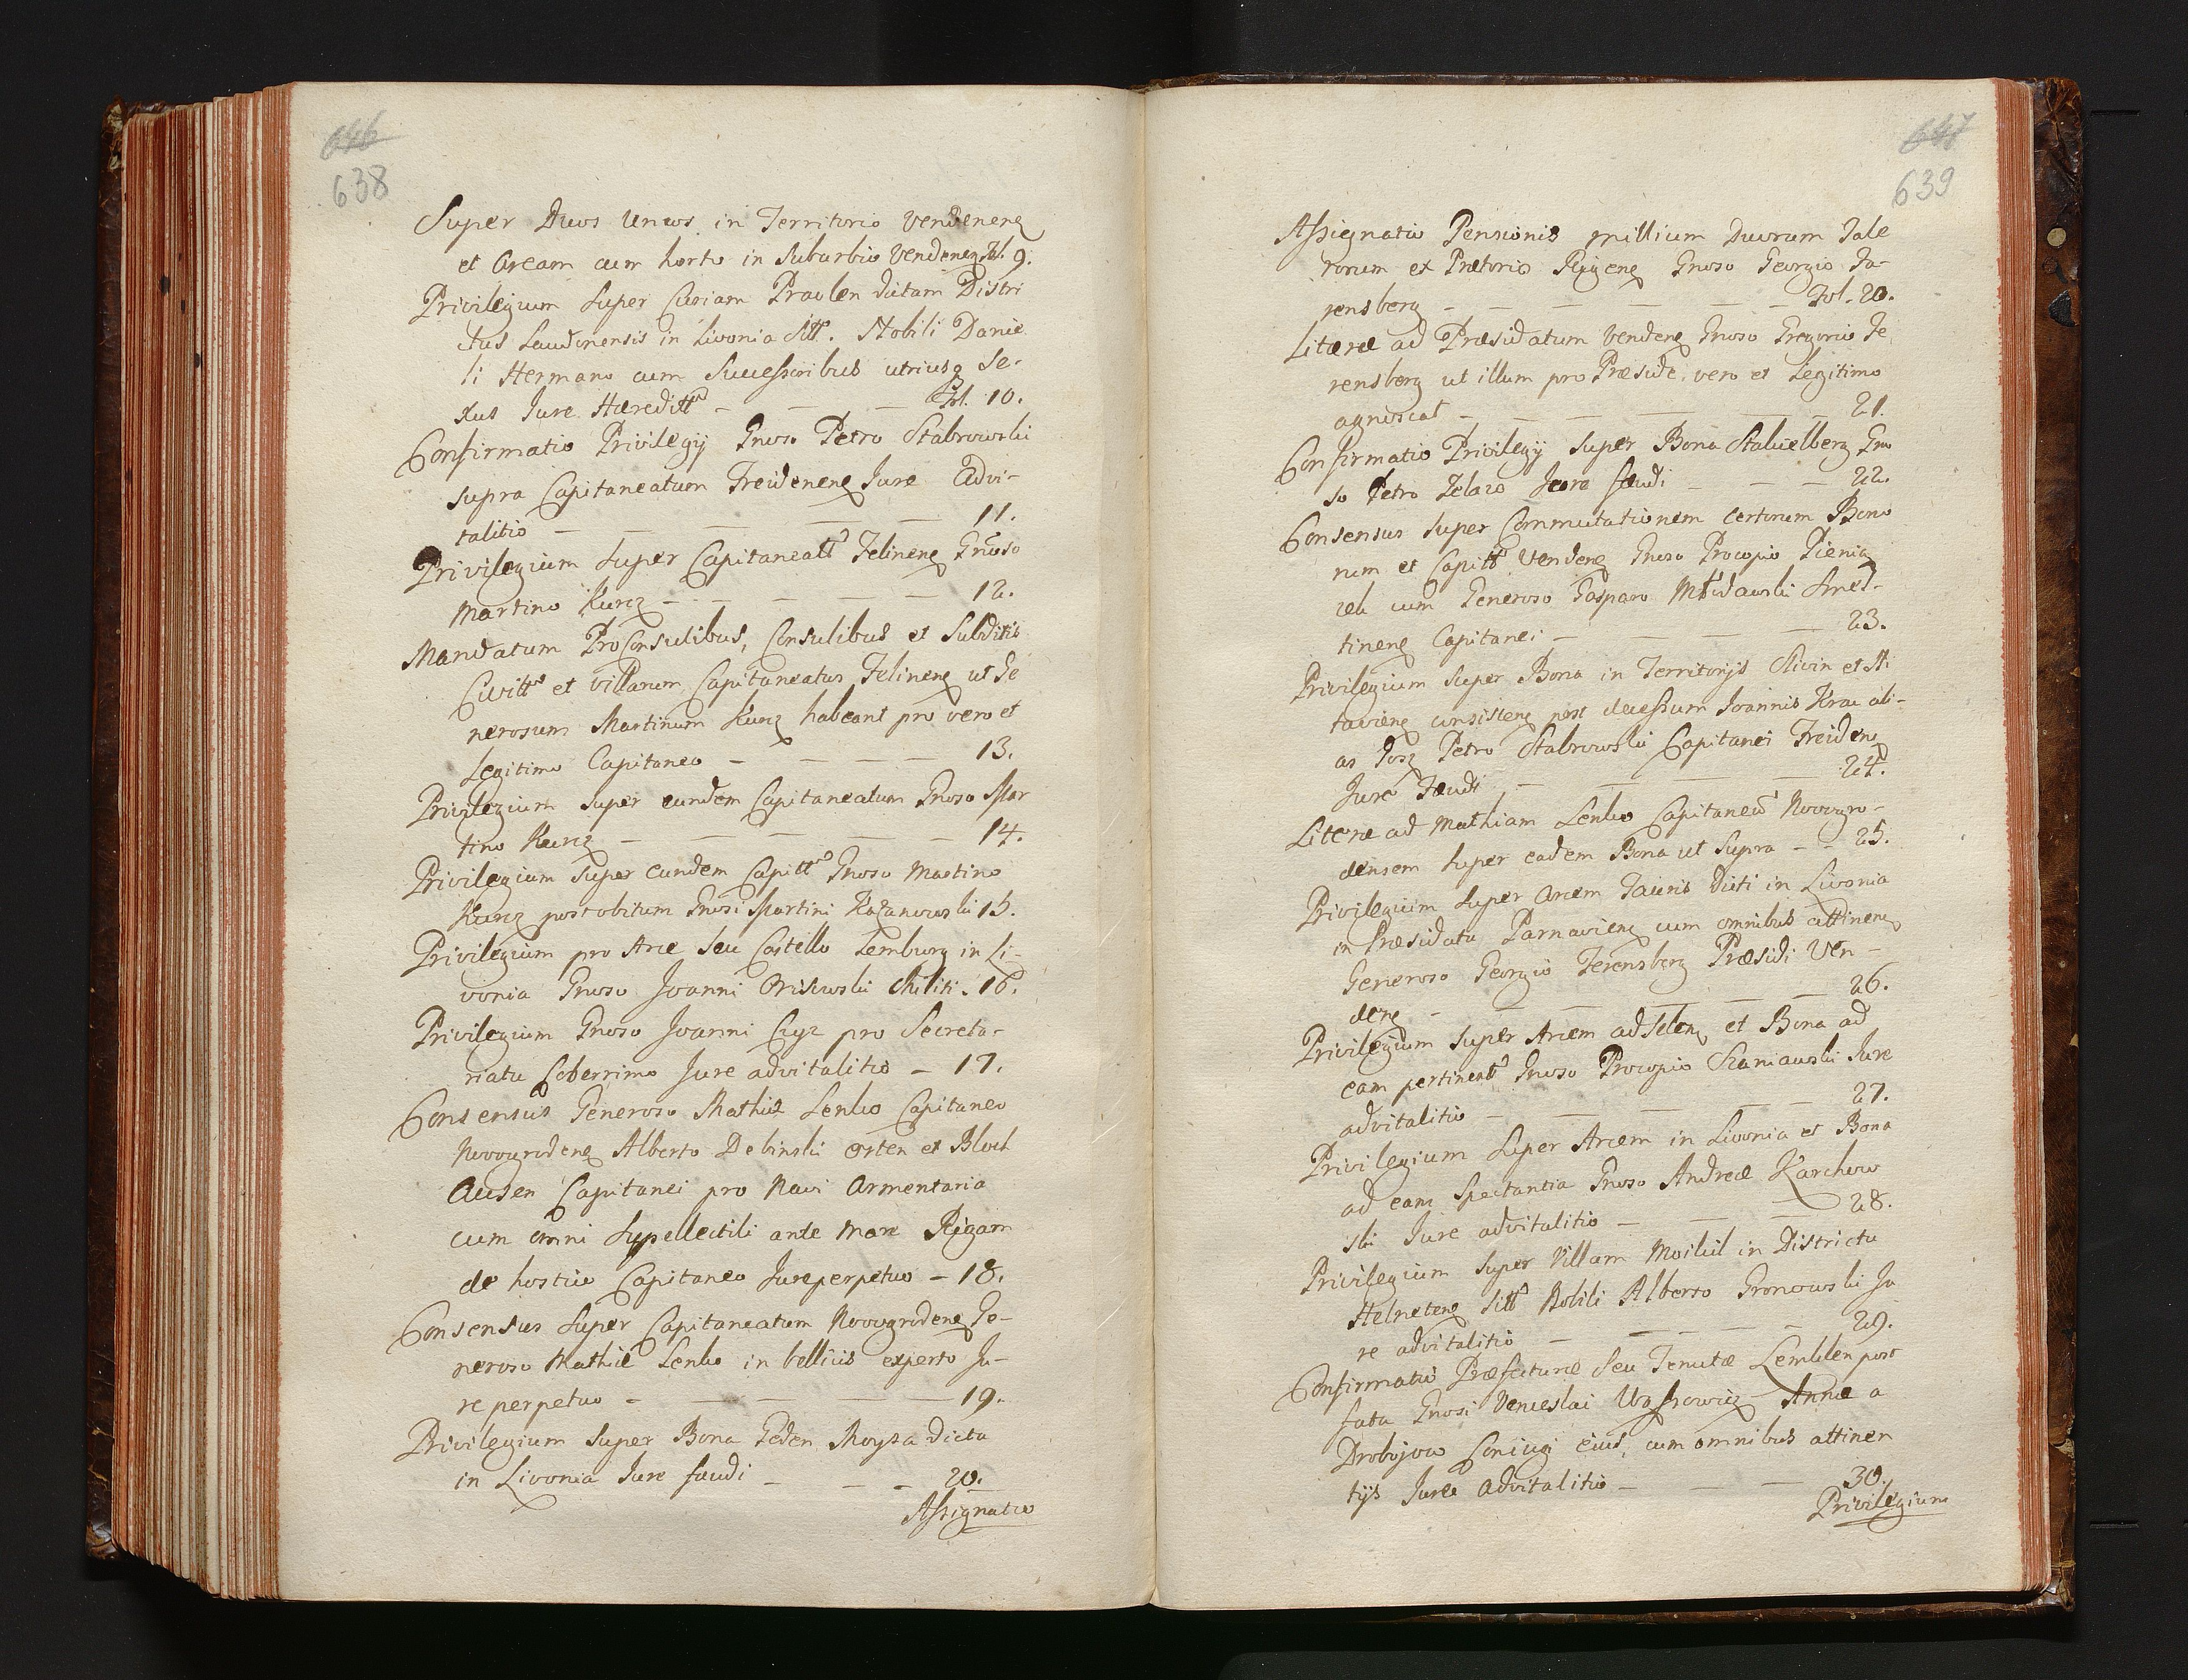 646
638
Super Duos Uncos in Territorio Vendenenq
et Aream cum horto in Suburbio Vendenenq Fol. 9.
Privilegium Super Curiam Praulen dictam Distri
ctus Laudinensis in Livonia sitt. Nobili Danie
li Hermano cum Successoribus utriusq Se-
xus Jure Hareditto — — — Fol. 10.
Confirmatio Privilegij Gnoso Petro Stabrowski
supra Capitaneatum Treidenenq Jure Advi-
talitio — — — — — 11.
Privilegium Super Capitaneatt Felinenq Gnoso
Martino Kurcz — — — — — 12.
Mandatum ProConsulibus, Consulibus et Subditis
Civitts et Villarum Capitaneatus Felinenq ut Ge
nerosum Martinum Kurcz habeant pro vero et
Legitimo Capitaneo — — — — 13.
Privilegium Super eundem Capitaneatum Gnoso Mar
tino Kurcz — — — — — 14.
Privilegium Super eundem Capitt Gnoso Martino
Kurcz post obitum Gnosi Martini Kazanowski 15.
Privilegium pro Arce Seu Castello Lemburg in Li-
vonia Gnoso Joanni Orisewski Militi. 16.
Privilegium Gnoso Joanni Czyz pro Secreta-
riatu Celerrimo Jure advitalitio — 17.
Consensus Generoso Mathiæ Lenko Capitaneo
Novogrodenq Alberto Debinski Orten et Bloch
Ausen Capitanei pro Navi Armentaria
cum omni Suppellectili ante Mare Rigam
de hostico Capitaneo Jure perpetuo — 18.
Consensus Super Capitaneatum Novogrodenq Ge-
neroso Mathiæ Lenko in bellicis experto Ju-
re perpetuo — — — 19.
Privilegium Super Bona Geden Moyza dicta
in Livonia Jure feudi — — — 20.
Assignatio
647
639
Assignatio Pensionis millium Duorum Tale
rorum ex Prætorio Rigenq Gnoso Georgio Fa-
rensberg — — — — — — Fol. 20.
Literæ ad Præsidatum Vendenq Gnoso Gregorio Fe
rensberg ut illum pro Præside vero et Legitimo
agnoscat — — — — — — 21.
Confirmatio Privilegij Super Bona Stakelberg Gno
so Petro Zelazo Jure feudi — — — 22.
Consensus Super Commutationem certorum Bono
rum et Capitt Vendenq Gnoso Procopio Pieniq
zek cum Generoso Gasparo Mldawski Smel-
tinenq Capitanei — — — — 23.
Privilegium Super Bona in Territorijs Olivin et Mi
tavienq consistenq post decessum Joannis Krac ali-
as Josz Petro Stabrowski Capitanei Treidenq
Jure Feudi — — — — 24.
Literæ ad Mathiam Lenko Capitaneum Novogro-
densem Super eadem Bona ut Supra — — 25.
Privilegium Super Arcem Tauris dicti in Livonia
in Præsidatu Parnavienq cum omnibus attinenq
Generoso Georgio Ferensberg Præsidi Ven-
denq — — — — — — 26.
Privilegium Super Arcem adselenq et Bona ad
eam pertinentt Gnoso Procopio Staniawski Jure
advitalitio — — — — — 27.
Privilegium Super Arcem in Livonia et Bona
ad eam Spectantia Gnoso Andreæ Karchow
ski Jure advitalitio — — — 28.
Privilegium Super Villam Moikil in Districtu
Helnetenq Sitt Nobili Alberto Gronowski Ju
re advitalitio — — — — — 29.
Confirmatio Præfecturæ Seu Tenutæ Lemklen post
fata Gnosi Venceslai Wąssowicz Annæ a
Drohojow Coniugi eius, cum omnibus attinen
tijs Jure Advitalitio — — — 30.
Privilegium